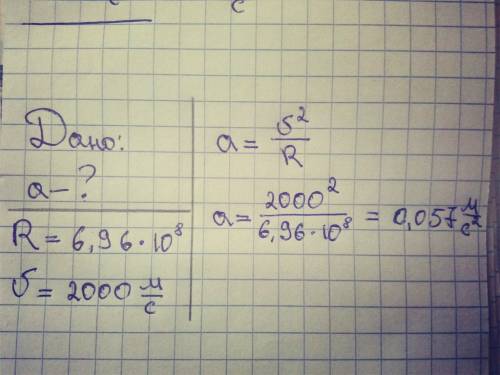 с
Дано:
a - ?
R = 6,96 · 10⁸
υ = 2000 м/с
a = υ²/R
a = 2000²/6,96 · 10⁸ = 0,057 м/с²